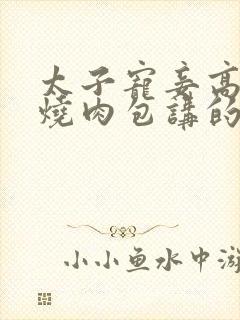 太子寵妾高
燒肉包講的
小小鱼水中游